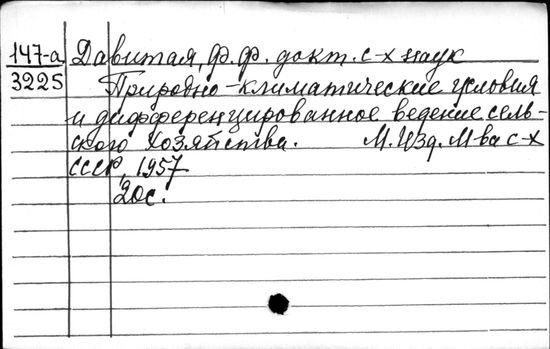 147-а Давитая, Ф.Ф. докт. с-х наук
3225 Природно-климатические условия
и дифференцированное ведение сель-
ского хозяйства. М. Изд. М ва с-х
СССР, 1957
20с.